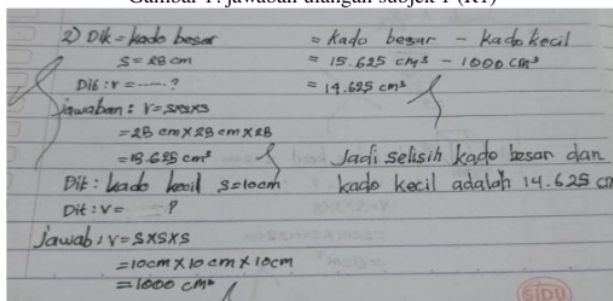 Gambar 1. jawaban ulangan subjek 1 (R1)
2) Dik = kado besar
S = 28 cm
Dit : v = ------ ?
jawaban : V = sxsxs
= 28 cm x 28 cm x 28
= 15.625 cm³
Dit : kado kecil s = 10cm
Dit : v = ?
Jawab : v = s x s x s
= 10cm x 10 cm x 10cm
= 1000 cm³
= kado besar - kado kecil
= 15.625 cm³ - 1000 cm³
= 14.625 cm³
Jadi selisih kado besar dan
kado kecil adalah 14.625 cm
SIDU